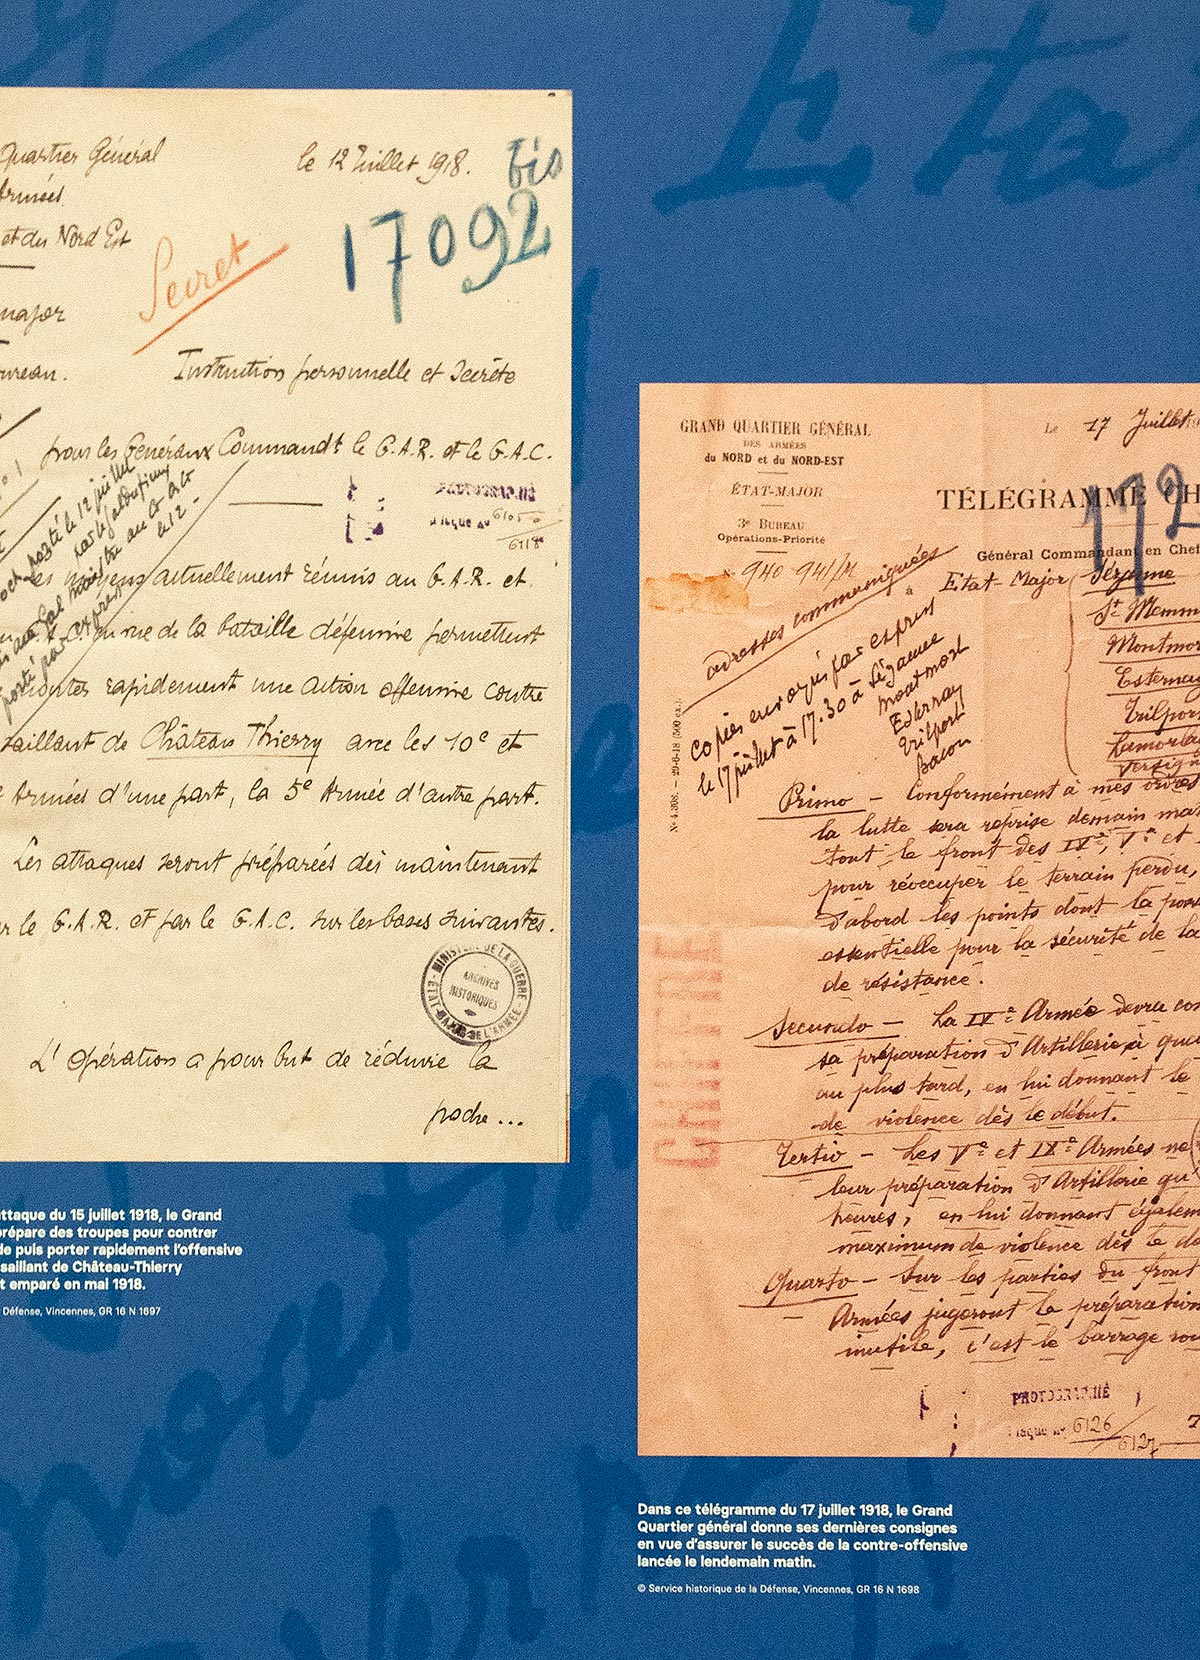 Quartier Général
le 12 Juillet 1918.
bis
Armées
17092
et du Nord Est
Secret
major
Bureau.
Instruction personnelle et Secrète
pour les Généraux Commandt le G.A.R. et le G.A.C.
PHOTOGRAPHIÉ
6118
actuellement réunis au G.A.R. et
en vue de la bataille défensive permettent
rapidement une action offensive contre
saillant de Château Thierry avec les 10e et
Armées d'une part, la 5e Armée d'autre part.
Les attaques seront préparées dès maintenant
le G.A.R. et par le G.A.C. sur les bases suivantes.
MINISTÈRE DE LA GUERRE
ARCHIVES
HISTORIQUES
ÉTAT-MAJOR DE L'ARMÉE
L'Opération a pour but de réduire la
poche...
attaque du 15 juillet 1918, le Grand
prépare des troupes pour contrer
de puis porter rapidement l'offensive
saillant de Château-Thierry
t emparé en mai 1918.
Défense, Vincennes, GR 16 N 1697
GRAND QUARTIER GÉNÉRAL
DES ARMÉES
du NORD et du NORD-EST
Le 17 Juillet 19
ÉTAT-MAJOR
TÉLÉGRAMME CH
172
3e BUREAU
Opérations-Priorité
Général Commandant en Chef
No 940 941/M
à Etat-Major
Sézanne
St Memm
Montmor
Esternay
Trilpor
adresses communiquées
copies envoyés par exprès
le 17 juillet à 17.30 à Sézanne
Montmort
Esternay
Trilport
Bacon
No 4.308. — 29-6-18 (500 ex.)
Primo — Conformément à mes ordres
la lutte sera reprise demain mat
tout le front des IVe, Ve et
pour réoccuper le terrain perdu,
d'abord les points dont la poss
essentielle pour la sécurité de la
de résistance.
CHIFFRE
Secundo — La IVe Armée devra co
sa préparation d'Artillerie à qua
au plus tard, en lui donnant le
de violence dès le début.
Tertio — Les Ve et IXe Armées ne
leur préparation d'Artillerie qu'
heures, en lui donnant égalem
maximum de violence dès le dé
Quarto — Sur les parties du front
Armées jugeront la préparation
inutile, c'est le barrage rou
PHOTOGRAPHIÉ
Disque No 6126
6127
Dans ce télégramme du 17 juillet 1918, le Grand
Quartier général donne ses dernières consignes
en vue d'assurer le succès de la contre-offensive
lancée le lendemain matin.
© Service historique de la Défense, Vincennes, GR 16 N 1698